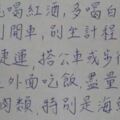 喝紅酒,多喝白
開車,別坐計程
捷運、搭公車或步
外面吃飯,盡量
肉類,特別是海